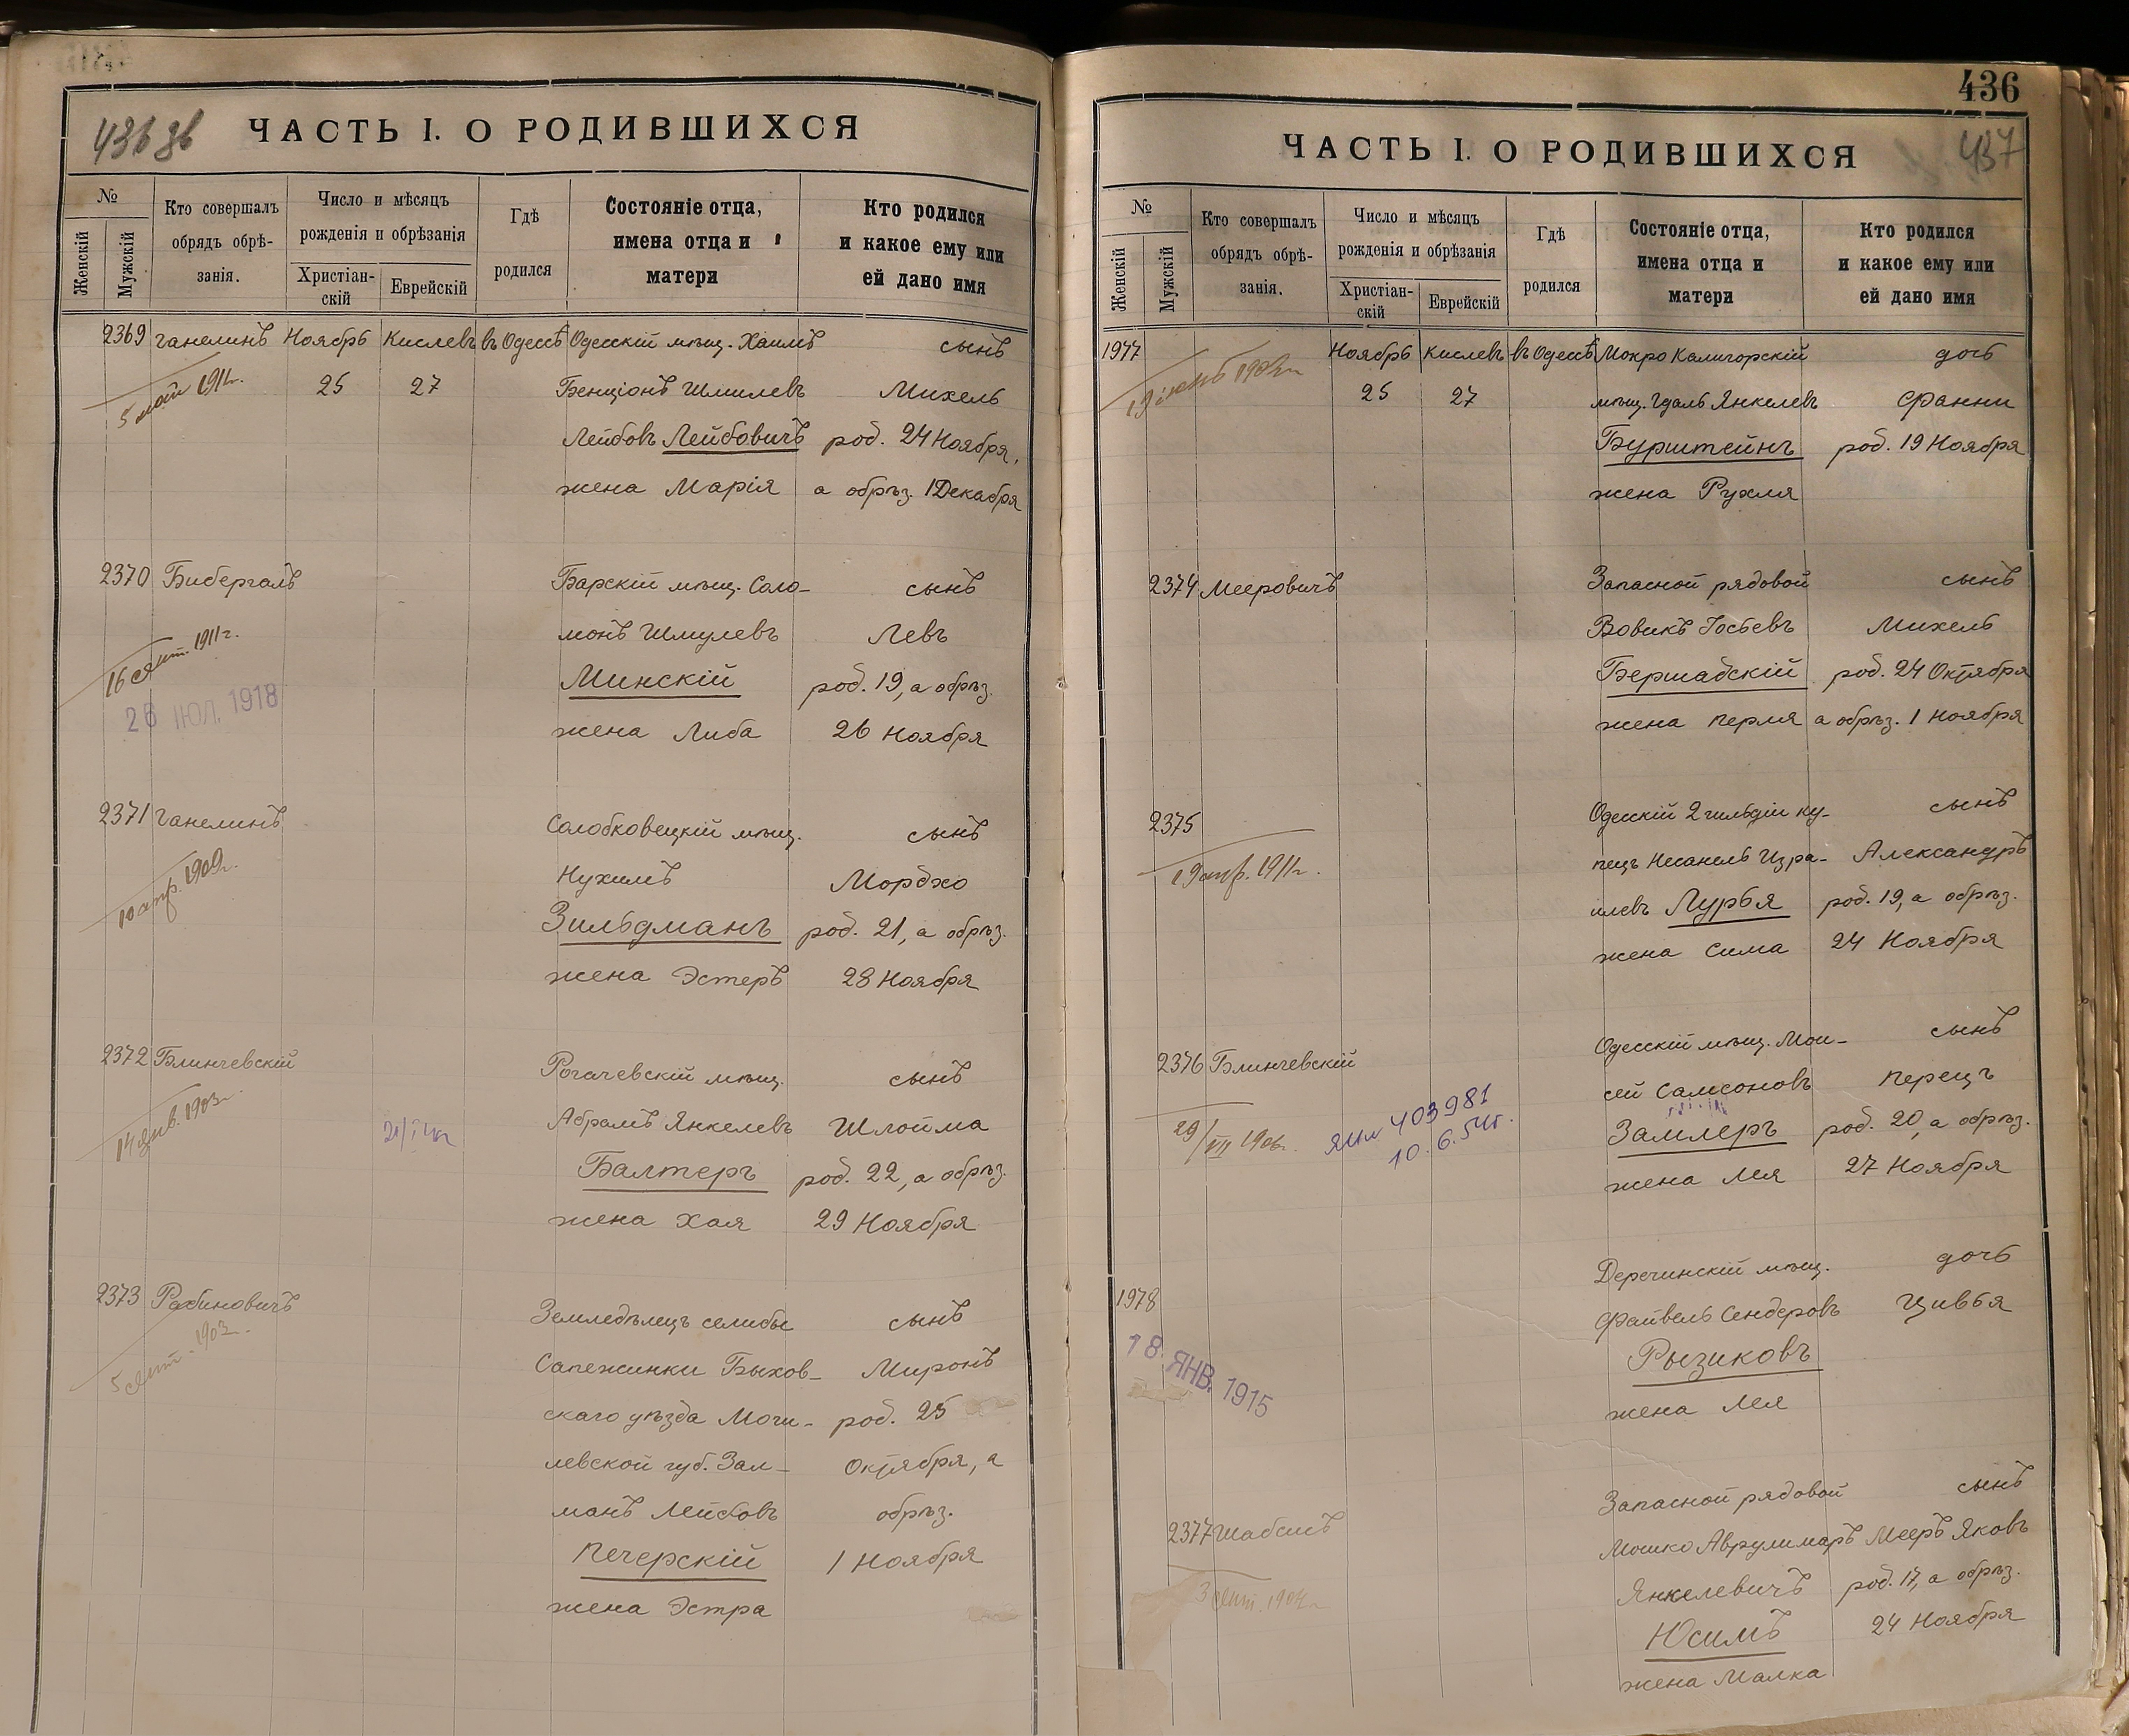 436 об
ЧАСТЬ I. О РОДИВШИХСЯ
№
Женскій
Мужскій
Кто совершалъ
обрядъ обрѣ-
занія.
Число и мѣсяцъ
рожденія и обрѣзанія
Христіан-
скій
Еврейскій
Гдѣ
родился
Состояніе отца,
имена отца и
матери
Кто родился
и какое ему или
ей дано имя
2369 Ганелинъ Ноябрь Кислевъ въ Одессѣ Одесскій мѣщ. Хаимъ сынъ
5 май 1911г. 25 27 Бенціонъ Шмилевъ Михель
Лейбовъ Лейбовичъ род. 24 Ноября,
жена Марія а обрѣз. 1 Декабря
2370 Бибергалъ Барскій мѣщ. Соло- сынъ
монъ Шмулевъ Левъ
16 сент. 1911г. Минскій род. 19, а обрѣз.
26 ІЮЛ. 1918 жена Либа 26 Ноября
2371 Ганелинъ Солобковецкій мѣщ. сынъ
Нухимъ Мордхо
10 апр. 1909г. Зильдманъ род. 21, а обрѣз.
жена Эстеръ 28 Ноября
2372 Блинчевскій Рогачевскій мѣщ. сынъ
14 янв. 1903г. Абрамъ Янкелевъ Шлойма
Балтеръ род. 22, а обрѣз.
жена Хая 29 Ноября
2373 Рабиновичъ Земледѣлецъ селибы сынъ
5 сент. 1903г. Сапежинки Быхов- Миронъ
скаго уѣзда Моги- род. 25
левской губ. Зал- Октября, а
манъ Лейбовъ обрѣз.
Печерскій 1 Ноября
жена Эстра
436
437
ЧАСТЬ I. О РОДИВШИХСЯ
№
Женскій
Мужскій
Кто совершалъ
обрядъ обрѣ-
занія.
Число и мѣсяцъ
рожденія и обрѣзанія
Христіан-
скій
Еврейскій
Гдѣ
родился
Состояніе отца,
имена отца и
матери
Кто родился
и какое ему или
ей дано имя
1977 Ноябрь Кислевъ въ Одессѣ Мокро Калигорскій дочь
25 27 мѣщ. Гдаль Янкелевъ Франни
Бурштейнъ род. 19 Ноября
жена Рухля
2374 Мееровичъ Запасной рядовой сынъ
Вовикъ Іосьевъ Михель
Бершадскій род. 24 Октября
жена Перля а обрѣз. 1 Ноября
2375 Одесскій 2 гильдіи ку- сынъ
19 апр. 1911г. пецъ Несанель Изра- Александръ
илевъ Лурья род. 19, а обрѣз.
жена Сима 24 Ноября
2376 Блинчевскій Одесскій мѣщ. Мои- сынъ
сей Самсоновъ Перецъ
29/VII 1906г. 403981 Замлеръ род. 20, а обрѣз.
10.6.54г. жена Лея 27 Ноября
1978 Деречинскій мѣщ. дочь
Файвель Сендеровъ Цивья
18 ЯНВ. 1915 Рызиковъ
жена Лея
Запасной рядовой сынъ
2377 Шабсисъ Мошко Аврулимаръ Мееръ Яковъ
3 сент. 1904г. Янкелевичъ род. 17, а обрѣз.
Юсимъ 24 Ноября
жена Малка